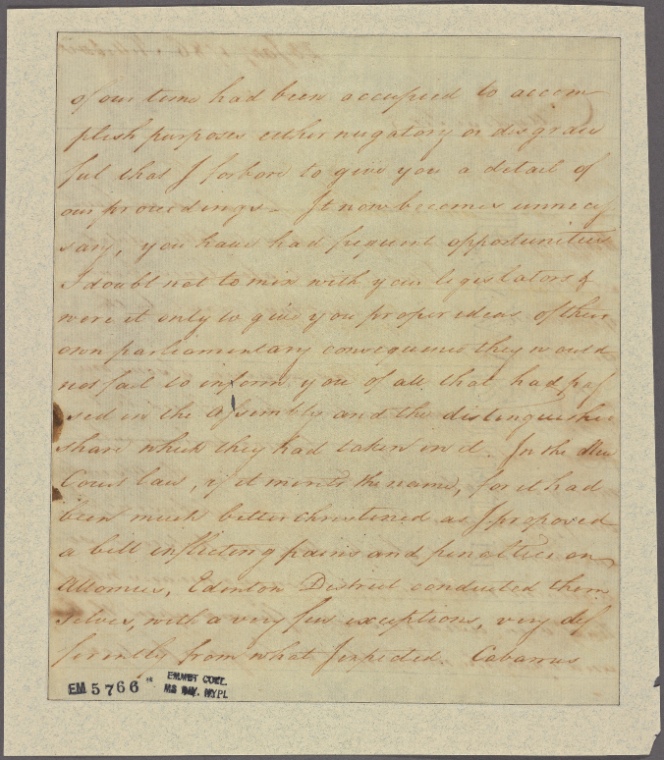 of our time had been accupied to accom
plish purposes either nugatory or disgrace
ful that I forbore to give you a detail of
our proceedings - It now becomes unneces
sary, you have had frequent opportunities
I doubt not to mix with your legislators &
were it only to give you proper ideas of their
own parliamentary consequence they would
not fail to inform you of all that had pas
sed in the assembly and the distinguished
share which they had taken in it. In the
Court law, if it merits the name, for it had
been much better christened as I proposed
a bill inflicting pains and penalties on
Attornies, Edenton District conducted them
selves, with a very few exceptions, very dif
ferently from what I expected. Cabarrus
EM 5766
EMMET COLL.
MS DIV. NYPL